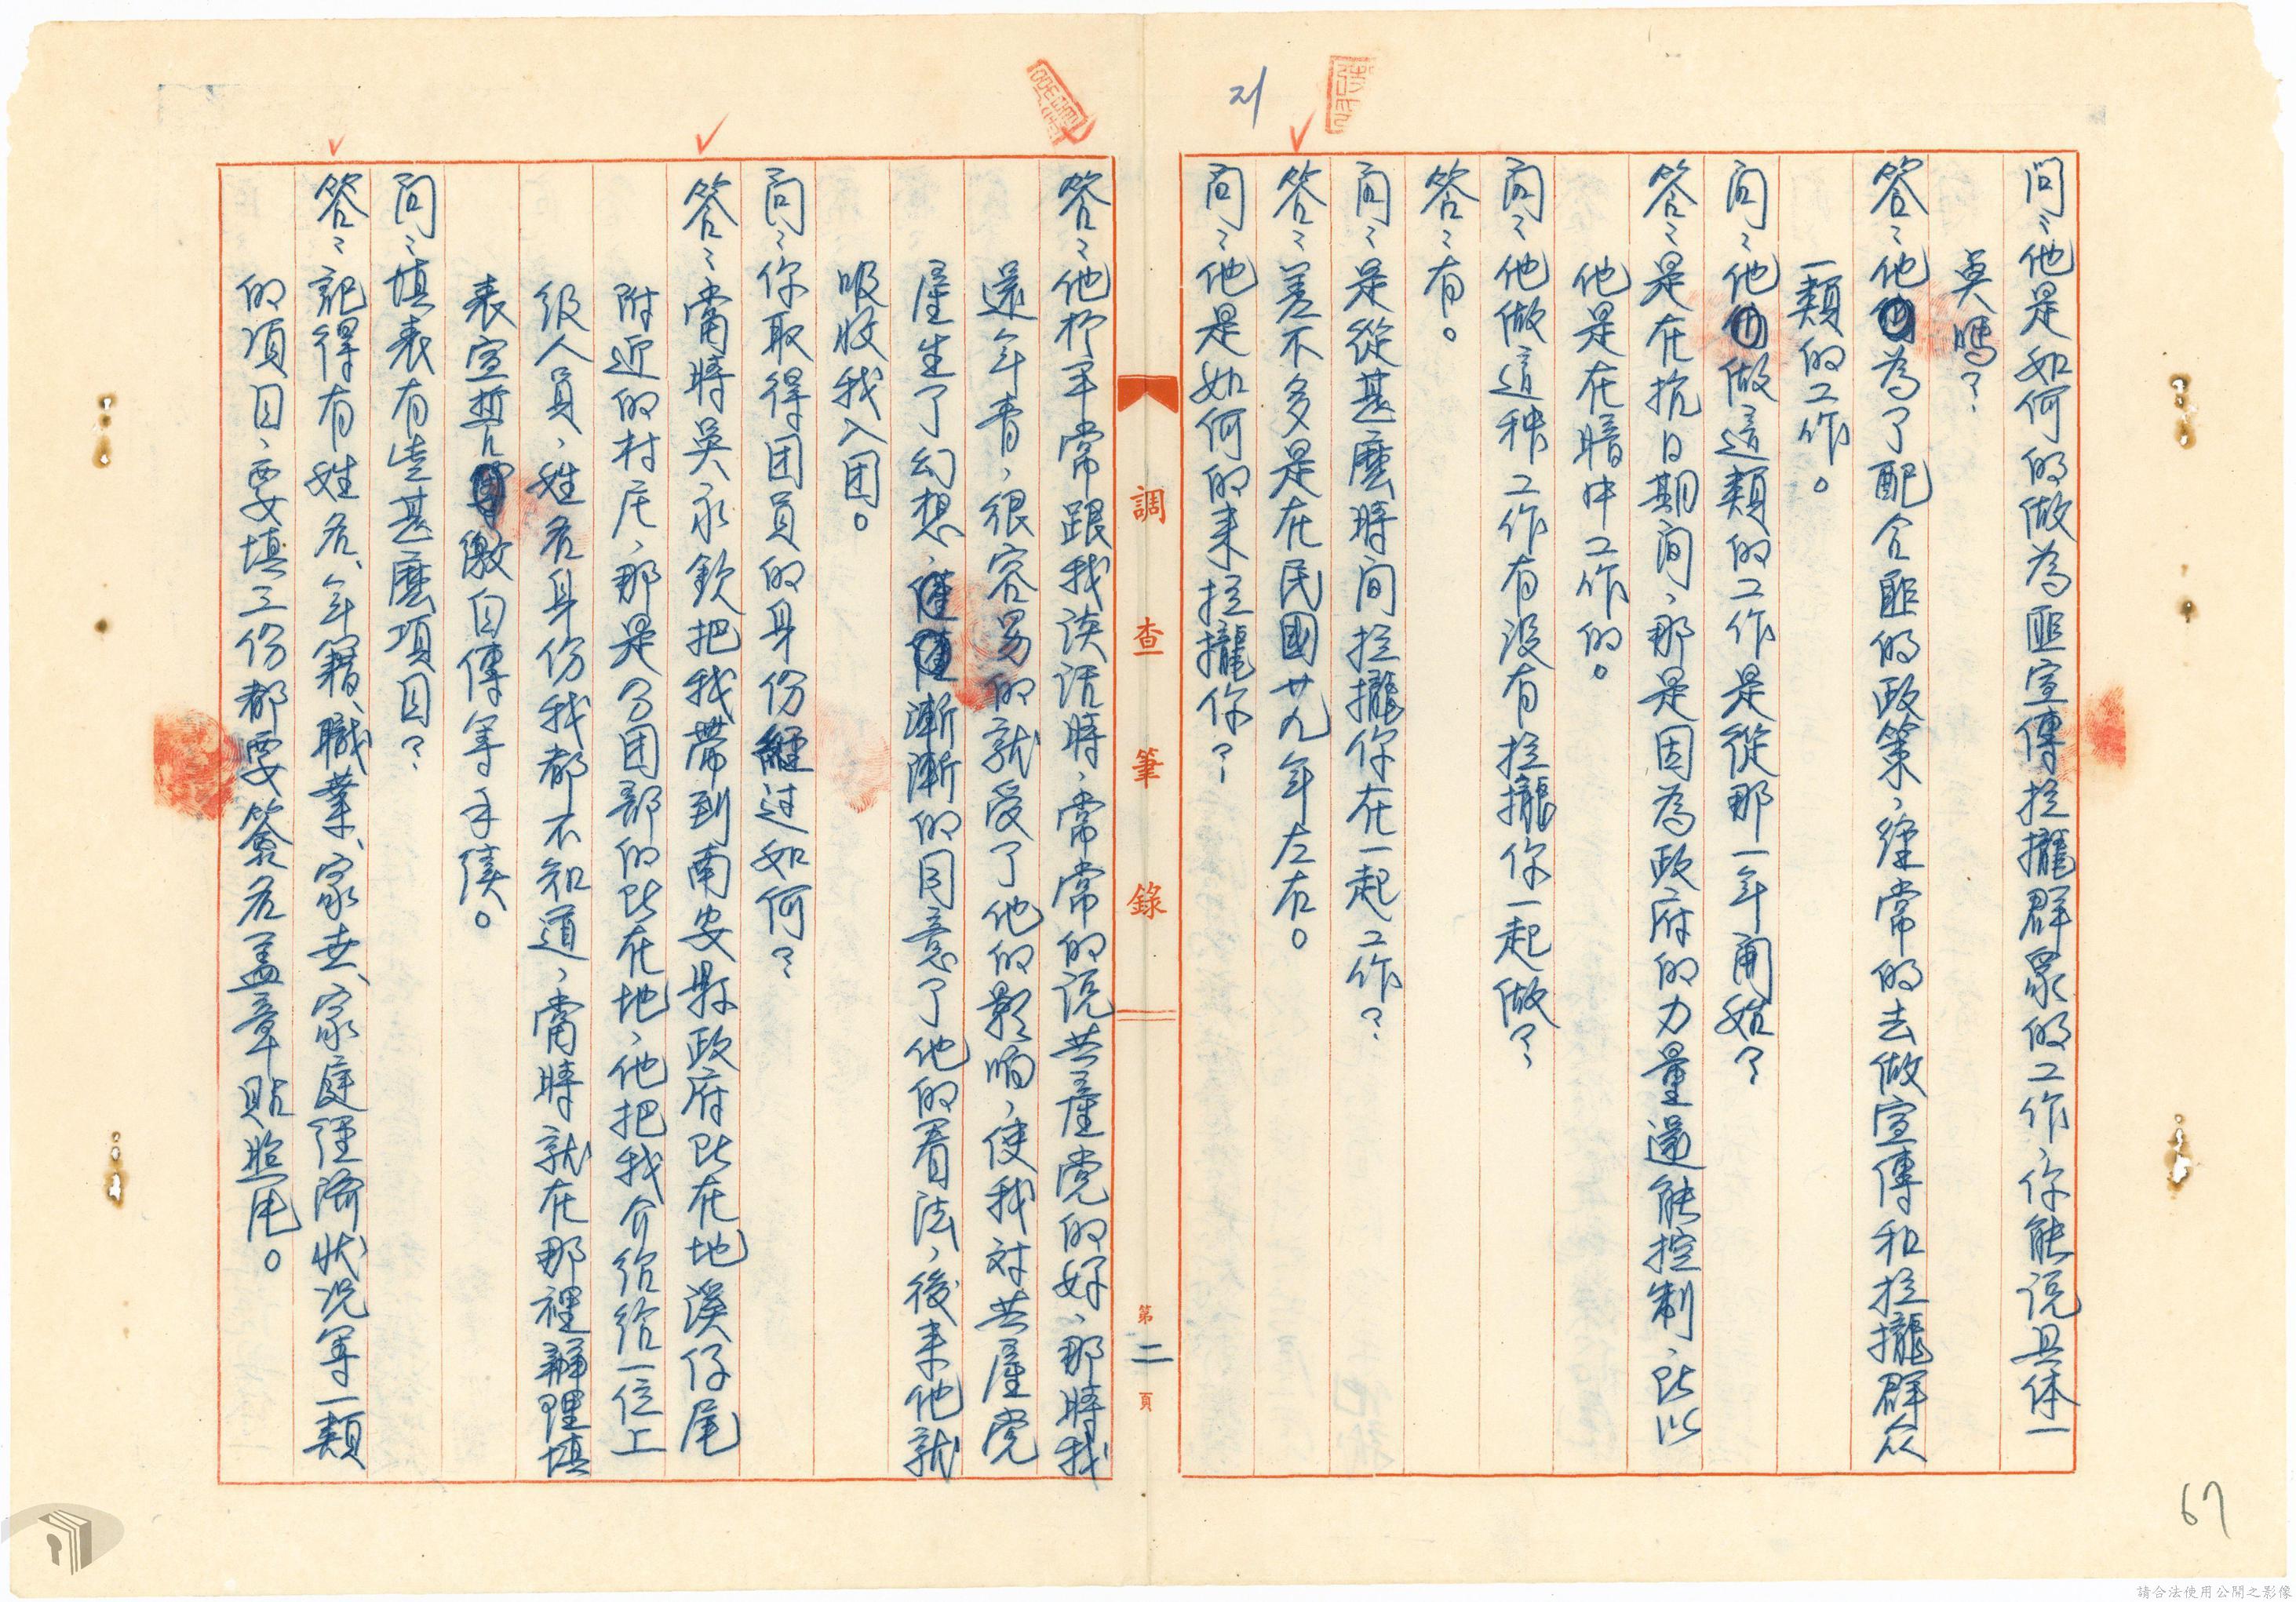 問：他是如何的做為匪宣傳拉攏群眾的工作，你能說具体一
奌嗎？
答：他為了配合匪的政策，經常的去做宣傳和拉攏群众
一類的工作。
問：他做這類的工作是從那一年開始？
答：是在抗日期间，那是因為政府的力量還能控制，所以
他是在暗中工作的。
問：他做這种工作有没有拉攏你一起做？
答：有。
問：是從甚麼時间拉攏你在一起工作？
答：差不多是在民國廿九年左右。
問：他是如何的來拉攏你？
調查筆錄
第二頁
答：他於平常跟我談話時，常常的说共產党的好，那時我
還年青，很容易的就受了他的影响，使我对共產党
產生了幻想，漸漸的同意了他的看法，後来他就
吸收我入团。
問：你取得团員的身份經过如何？
答：當時吳永欽把我帶到南安縣政府所在地溪仔尾
附近的村庄，那是分团部的所在地，他把我介绍给一位上
级人員，姓名身份我都不知道，當時就在那裡辦理填
表宣誓繳自傳等手續。
問：填表有些甚麼項目？
答：記得有姓名、年籍、職業、家世、家庭經濟狀况等一類
的項目，要填三份都要簽名盖章貼照片。
67
請合法使用公開之影像